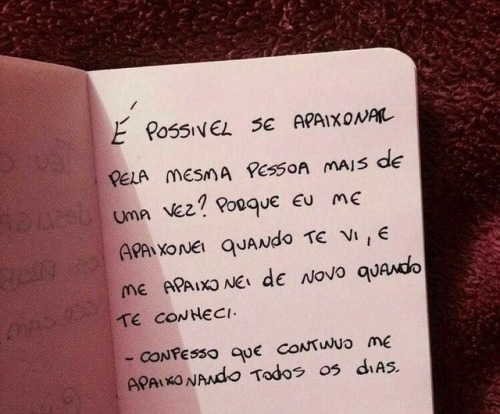 É POSSIVEL SE APAIXONAR
PELA MESMA PESSOA MAIS DE
UMA VEZ? PORQUE EU ME
APAIXONEI QUANDO TE VI, E
ME APAIXONEI DE NOVO QUANDO
TE CONHECI.
- CONFESSO QUE CONTINUO ME
APAIXONANDO TODOS OS DIAS.